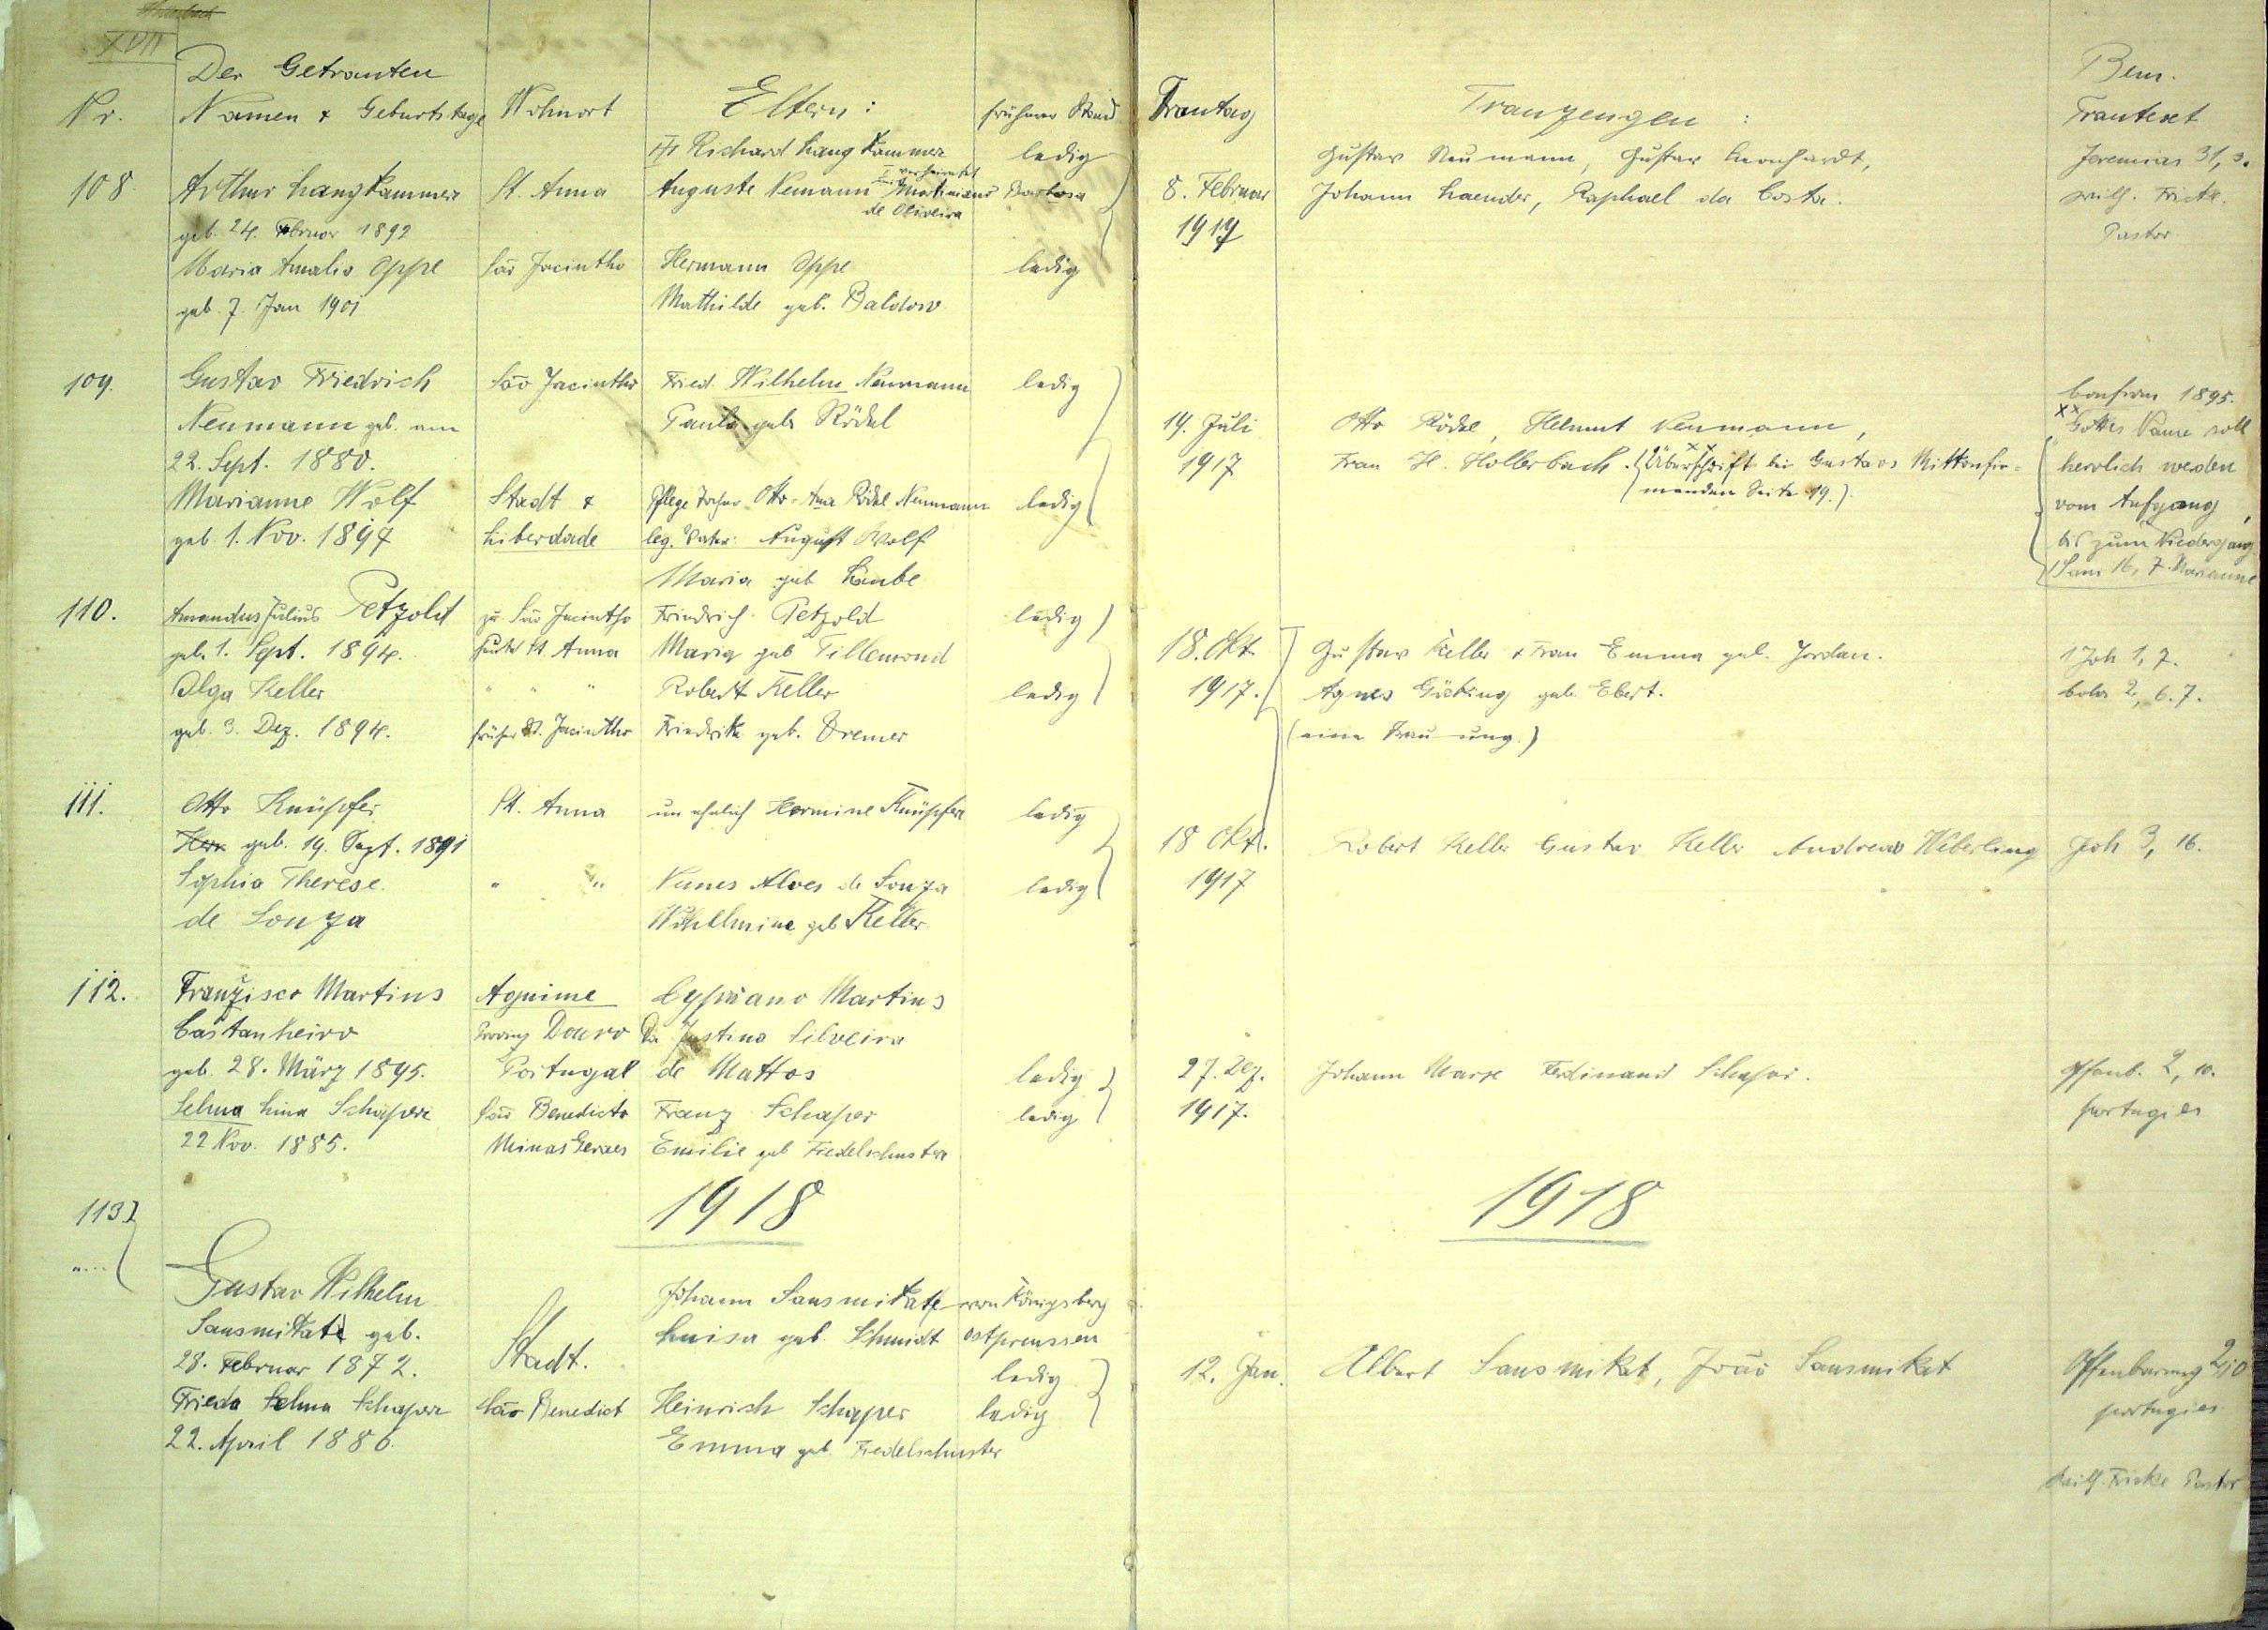 XVII
Der Getrauten
Nr. Namen & Geburtstage Wohnort Eltern: früherer Stand Trautag Trauzeugen: Bem.
Trautext
Richard Langkammer ledig Gustav Neumann, Gustav Leonhardt, Jeremias 31, 3.
108 Arthur Langkammer St. Anna Auguste Nemann verheiratet mit Barbosa 8. Februar Johann Laender, Raphael da Costa. Wilh. Fricke.
de Oliveira
geb. 24. Februar 1892 1917 Pastor
Maria Amalia Oppe São Jacintho Hermann Oppe ledig
geb. 7. Jan 1901 Mathilde geb. Baldow
109. Gustav Friedrich São Jacintho Fried. Wilhelm Neumann ledig Confirm 1895.
Neumann geb. am Paula geb. Rödel 19. Juli Otto Rödel, Helmut Neumann, xx Gottes Name soll
22. Sept. 1880. 1917 Frau H. Hollerbach. (Überschrift bei Gustavs Mitkonfir= herrlich werden
Marianne Wolf Stadt & Pflegetochter Otto- Rödel Neumann ledig manden Seite 19.) vom Aufgang
geb. 1. Nov. 1897 Liberdade leg. Vater: August Wolf bis zum Niedergang
Maria geb. Laube 7. Marianne
110. Amandus Julius Petzold zu São Jacintho Friedrich Petzold ledig
geb. 1. Sept. 1894. St. Anna Maria geb. Tillemond 18. Okt. Gustav Keller & Frau Emma geb. Jordan. 1 Joh 1, 7.
Olga Keller " " " Robert Keller ledig 1917. Agnes Göcking geb. Ebert. Colos 2, 6. 7.
geb. 3. Dez. 1894. früher St. Jacintho Friedrike geb. Bremer (eine Trauung.)
111. Otto Knüpfer St. Anna unehelich Hermine Knüpfer ledig
geb. 19. Sept. 1891 18 Okt. Robert Keller Gustav Keller Andreas Weberling Joh 3, 16.
Sophia Therese " " Nunes Alves de Souza ledig 1917
de Souza Wilhelmine geb Keller
112. Franzisco Martins Aguime Cypriano Martins
Castanheiro Provinz Douro Da Justina Silveira
geb. 28. März 1895. Portugal de Mattos ledig 27. Dez. Johann Marx Ferdinand Schaper. Offenb. 2, 10.
Selma Lina Schaper São Benedicto Franz Schaper ledig 1917. portugies
22 Nov. 1885. Minas Geraes Emilie geb Fiedelschuster
113 1918 1918
Gustav Wilhelm Johann Sausmikat von Königsberg
Sausmikat geb. Luisa geb. Schmidt Ostpreussen
28. Februar 1872. Stadt. ledig 12. Jan. Albert Sausmikat, João Sausmikat Offenbarung 2,10
Frieda Selma Schaper São Benedict Heinrich Schaper ledig portugies
22. April 1886. Emma geb. Fiedelschuster
Wilh. Fricke Pastor